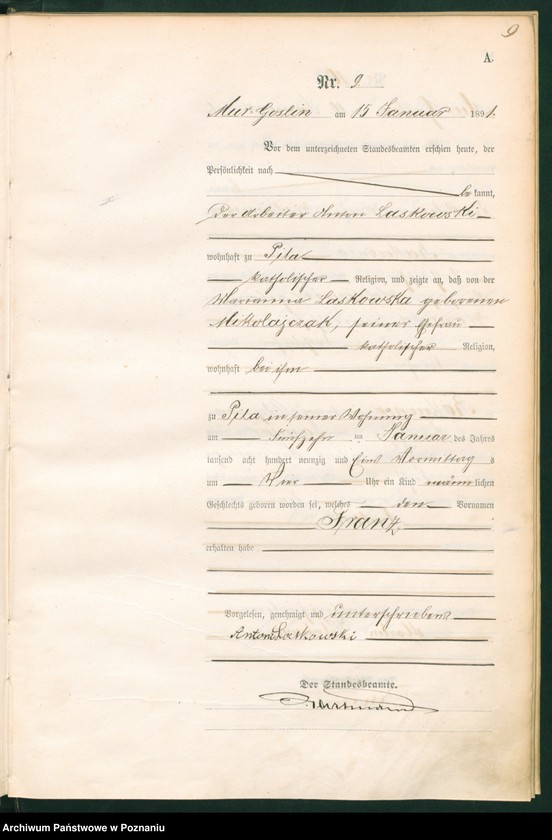 9
A.
Nr. 9.
Mur. Goslin am 15 Januar 1891.
Vor dem unterzeichneten Standesbeamten erschien heute, der
Persönlichkeit nach
be kannt,
Der Arbeiter Anton Laskowski
wohnhaft zu Pila
katholischer Religion, und zeigte an, daß von der
Marianna Laskowska geborenen
Mikolajczak, seiner Ehefrau
katholischer Religion,
wohnhaft bei ihm
zu Pila in seiner Wohnung
am Fünfzehn ten Januar des Jahres
tausend acht hundert neunzig und Eins Vormittag s
um Vier Uhr ein Kind männlichen
Geschlechts geboren worden sei, welches den Vornamen
Franz
erhalten habe
Vorgelesen, genehmigt und unterschrieben
Anton Laskowski
Der Standesbeamte.
Archiwum Państwowe w Poznaniu